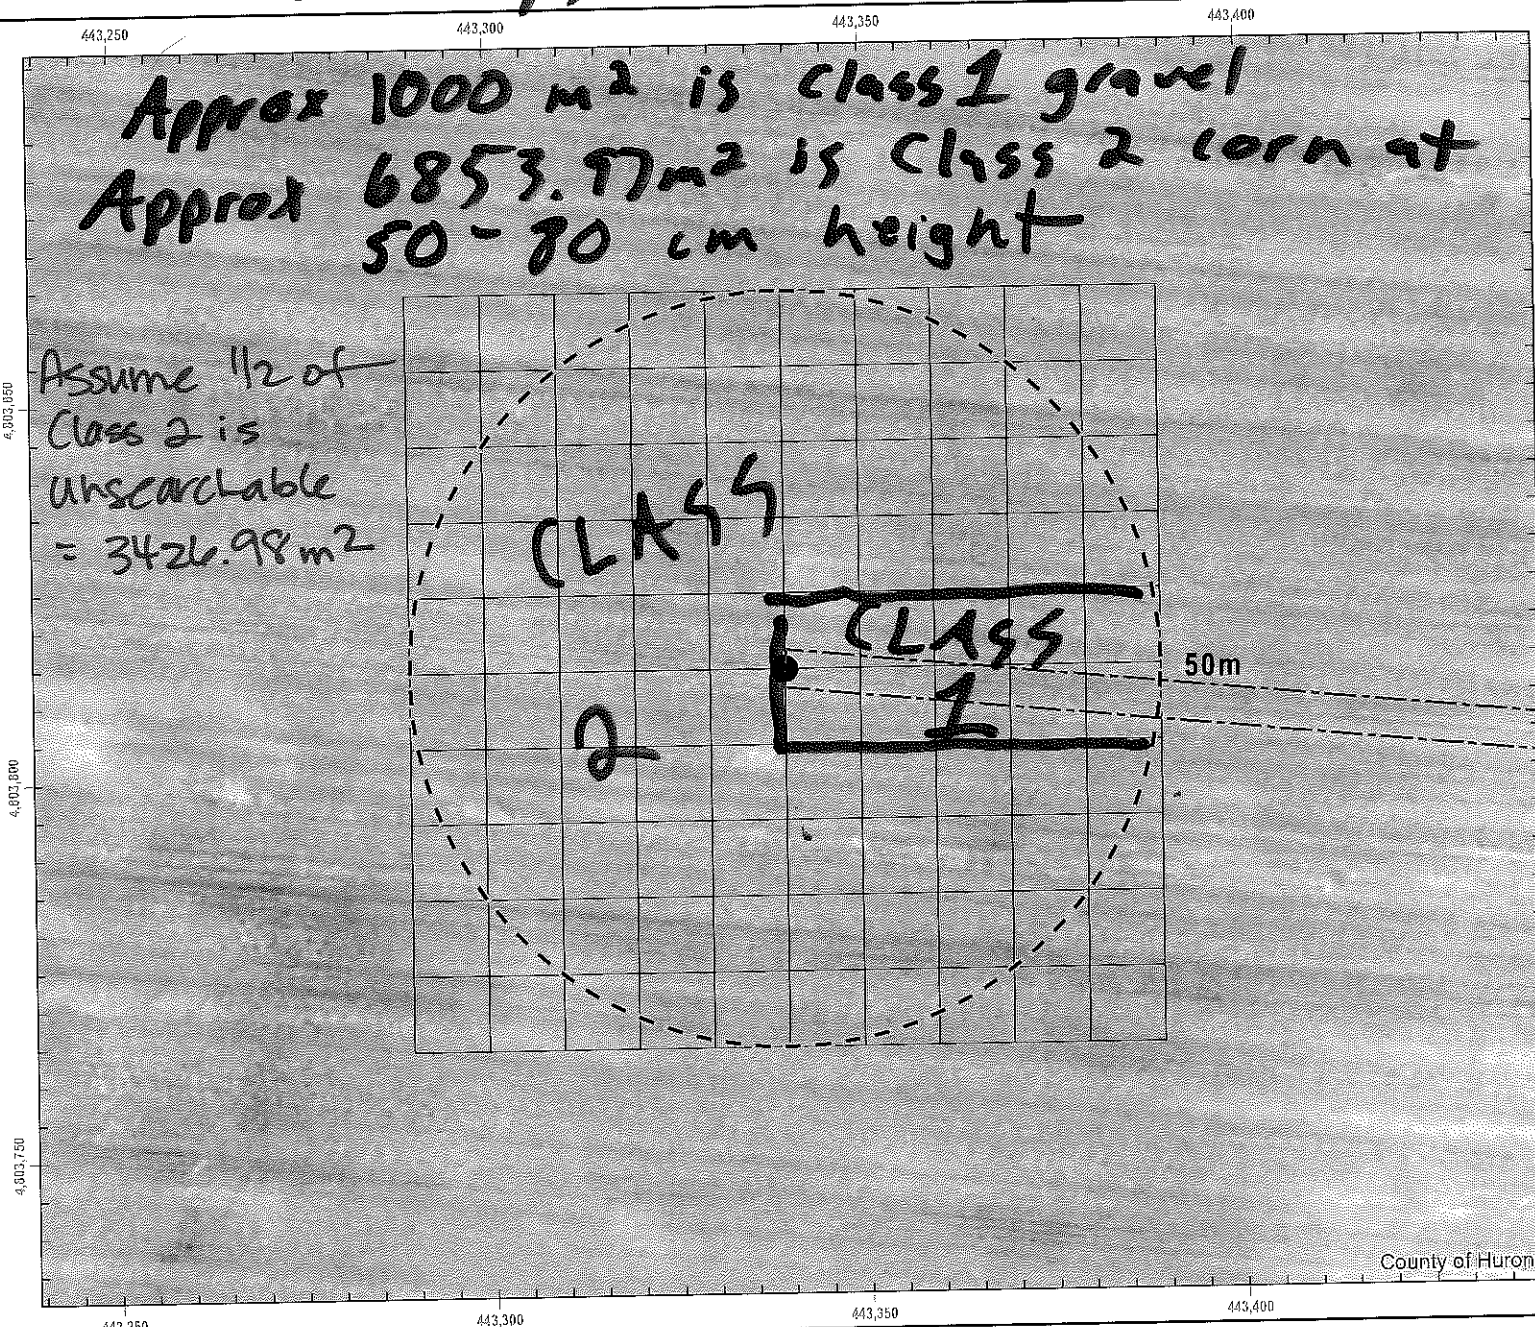 443,250 443,300 443,350 443,400
Approx 1000 m² is Class 1 gravel
Approx 6853.97m² is Class 2 corn at
50-80 cm height
Assume 1/2 of
Class 2 is
unsearchable
= 3426.98m²
4,803,850
CLASS
2
CLASS
1
50m
4,803,800
4,803,750
County of Huron
443,300 443,350 443,400